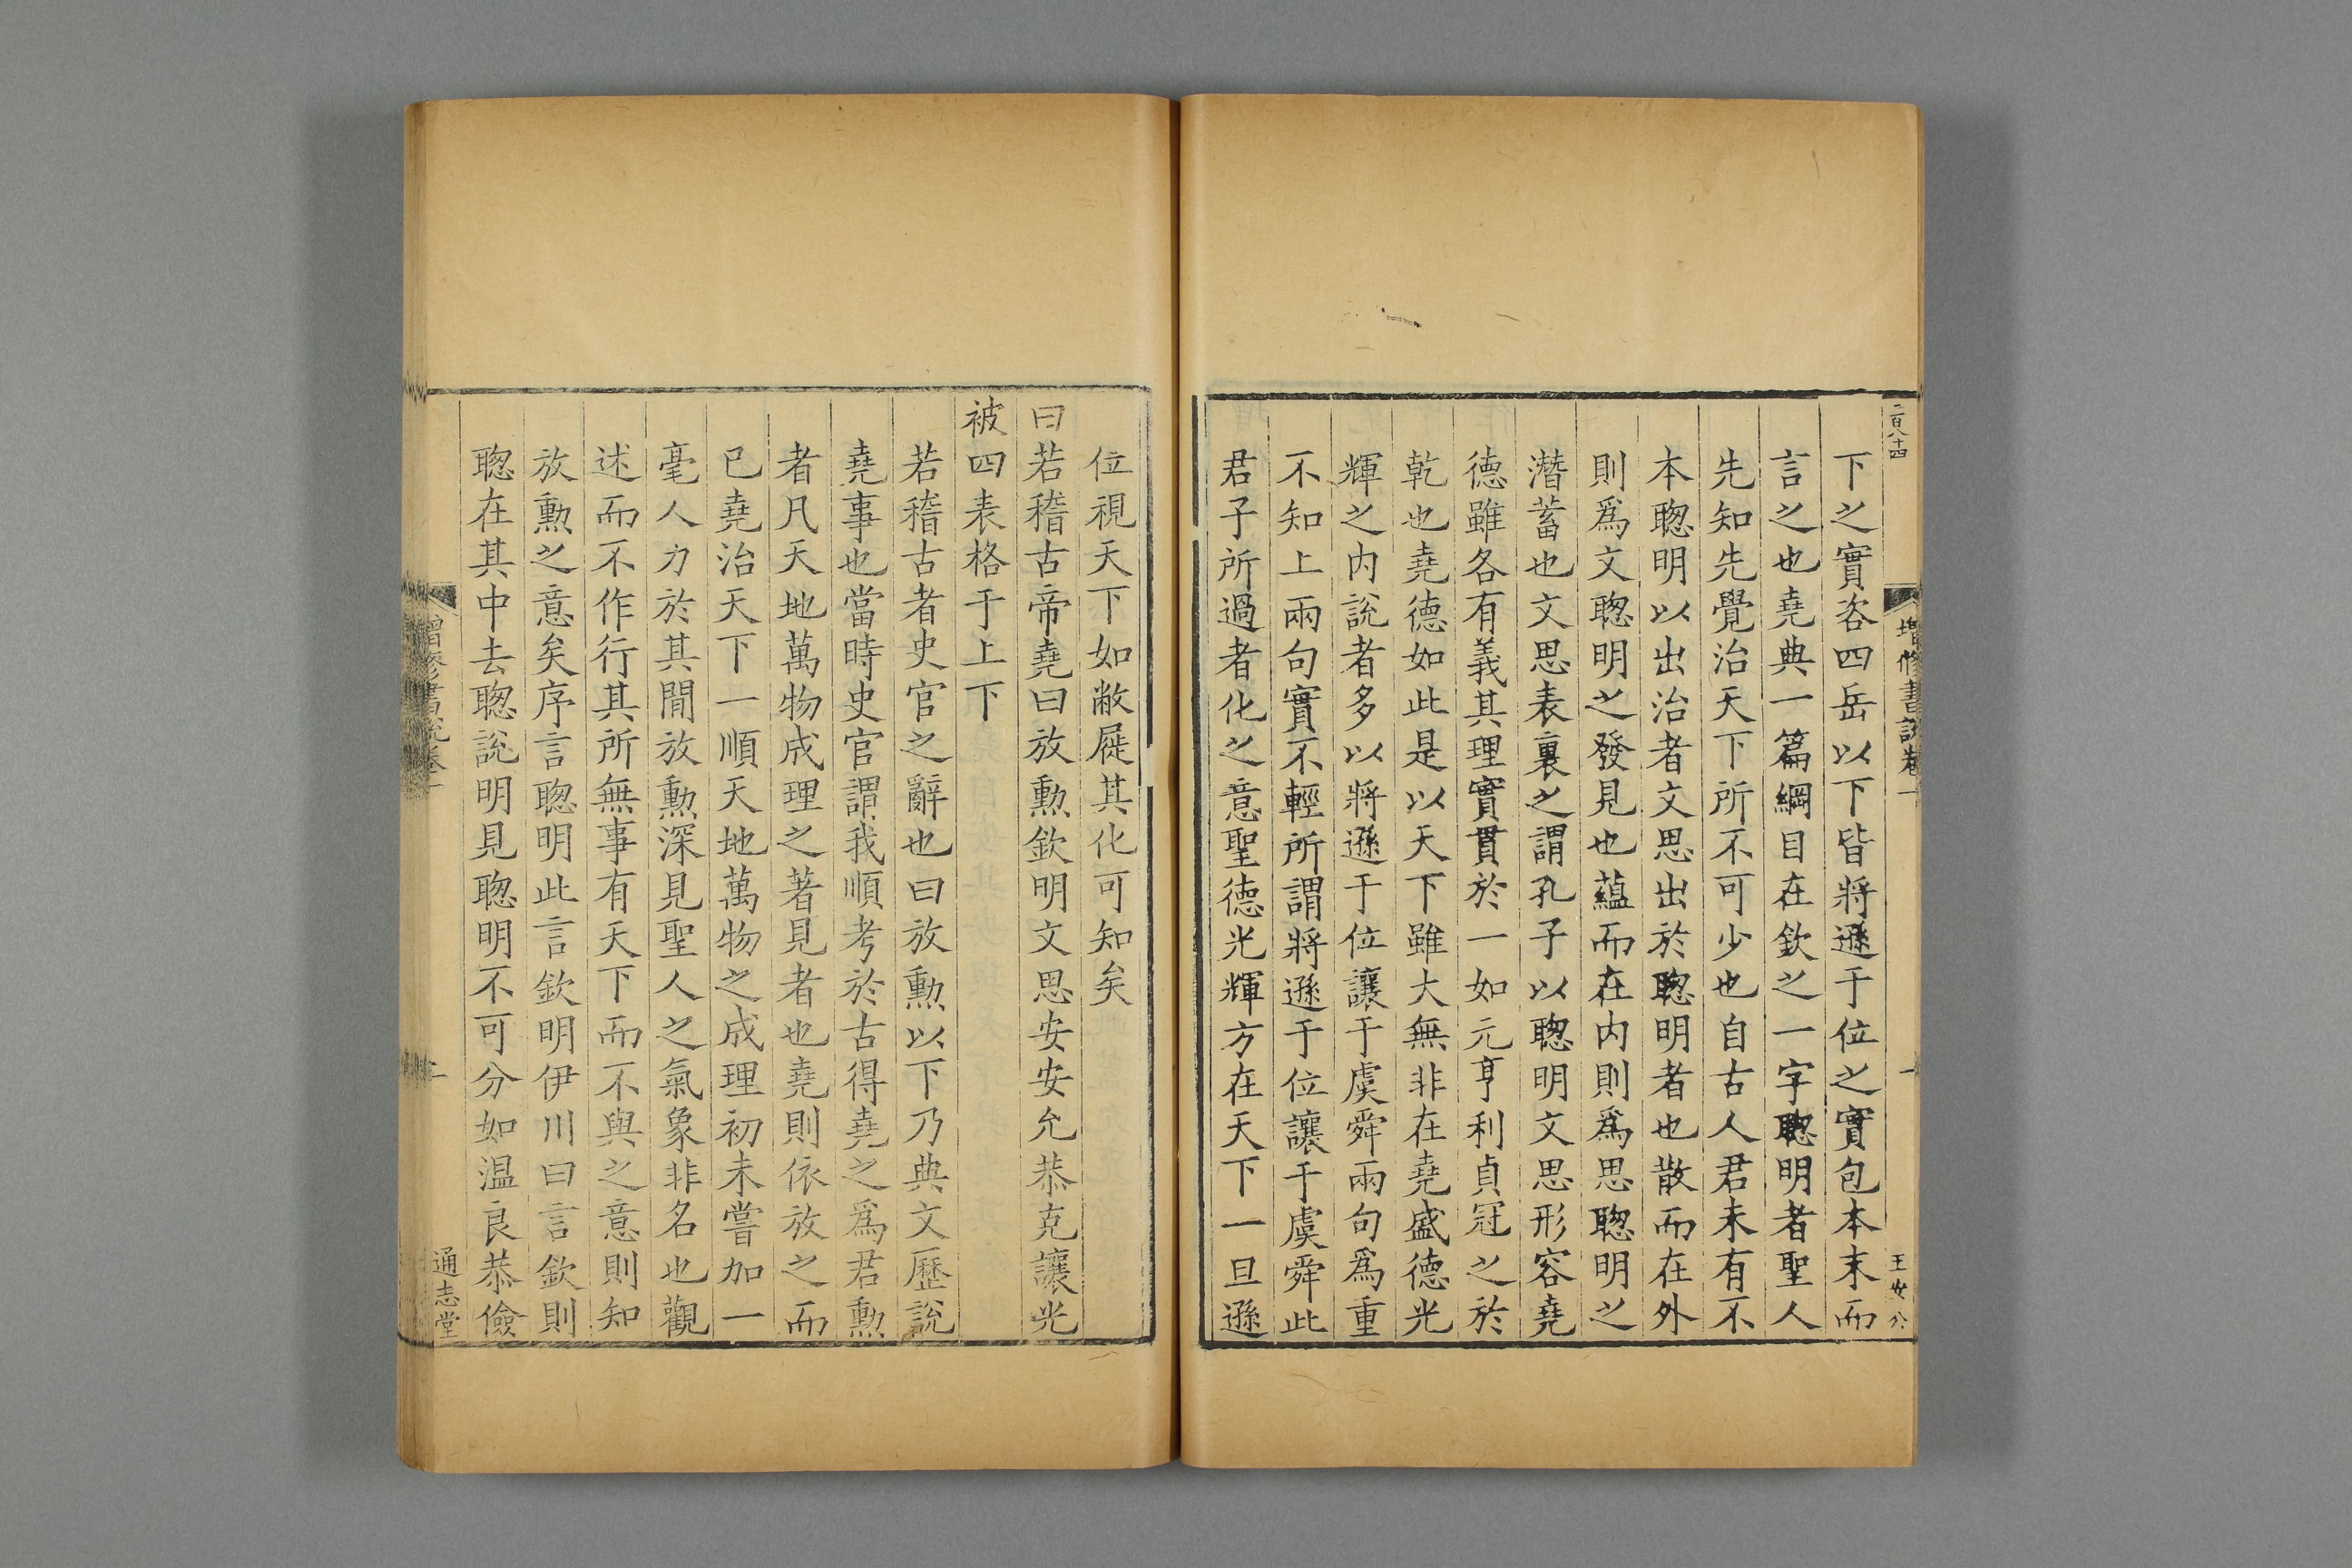 二百八十四
增修書說卷一
一
王安 公
下之實咨四岳以下皆將遜于位之實包本末而
言之也堯典一篇綱目在欽之一字聦明者聖人
先知先覺治天下所不可少也自古人君未有不
本聦明以出治者文思出於聦明者也散而在外
則爲文聦明之發見也蘊而在内則爲思聦明之
潛蓄也文思表裏之謂孔子以聦明文思形容堯
德雖各有義其理實貫於一如元亨利貞冠之於
乾也堯德如此是以天下雖大無非在堯盛德光
輝之内說者多以將遜于位讓于虞舜兩句爲重
不知上兩句實不輕所謂將遜于位讓于虞舜此
君子所過者化之意聖德光輝方在天下一旦遜
位視天下如敝屣其化可知矣
曰若稽古帝堯曰放勳欽明文思安安允恭克讓光
被四表格于上下
若稽古者史官之辭也曰放勳以下乃典文歷說
堯事也當時史官謂我順考於古得堯之爲君勳
者凡天地萬物成理之著見者也堯則依放之而
已堯治天下一順天地萬物之成理初未嘗加一
毫人力於其間放勳深見聖人之氣象非名也觀
述而不作行其所無事有天下而不與之意則知
放勳之意矣序言聦明此言欽明伊川曰言欽則
聦在其中去聦說明見聦明不可分如溫良恭儉
增修書說卷一
二
通志堂